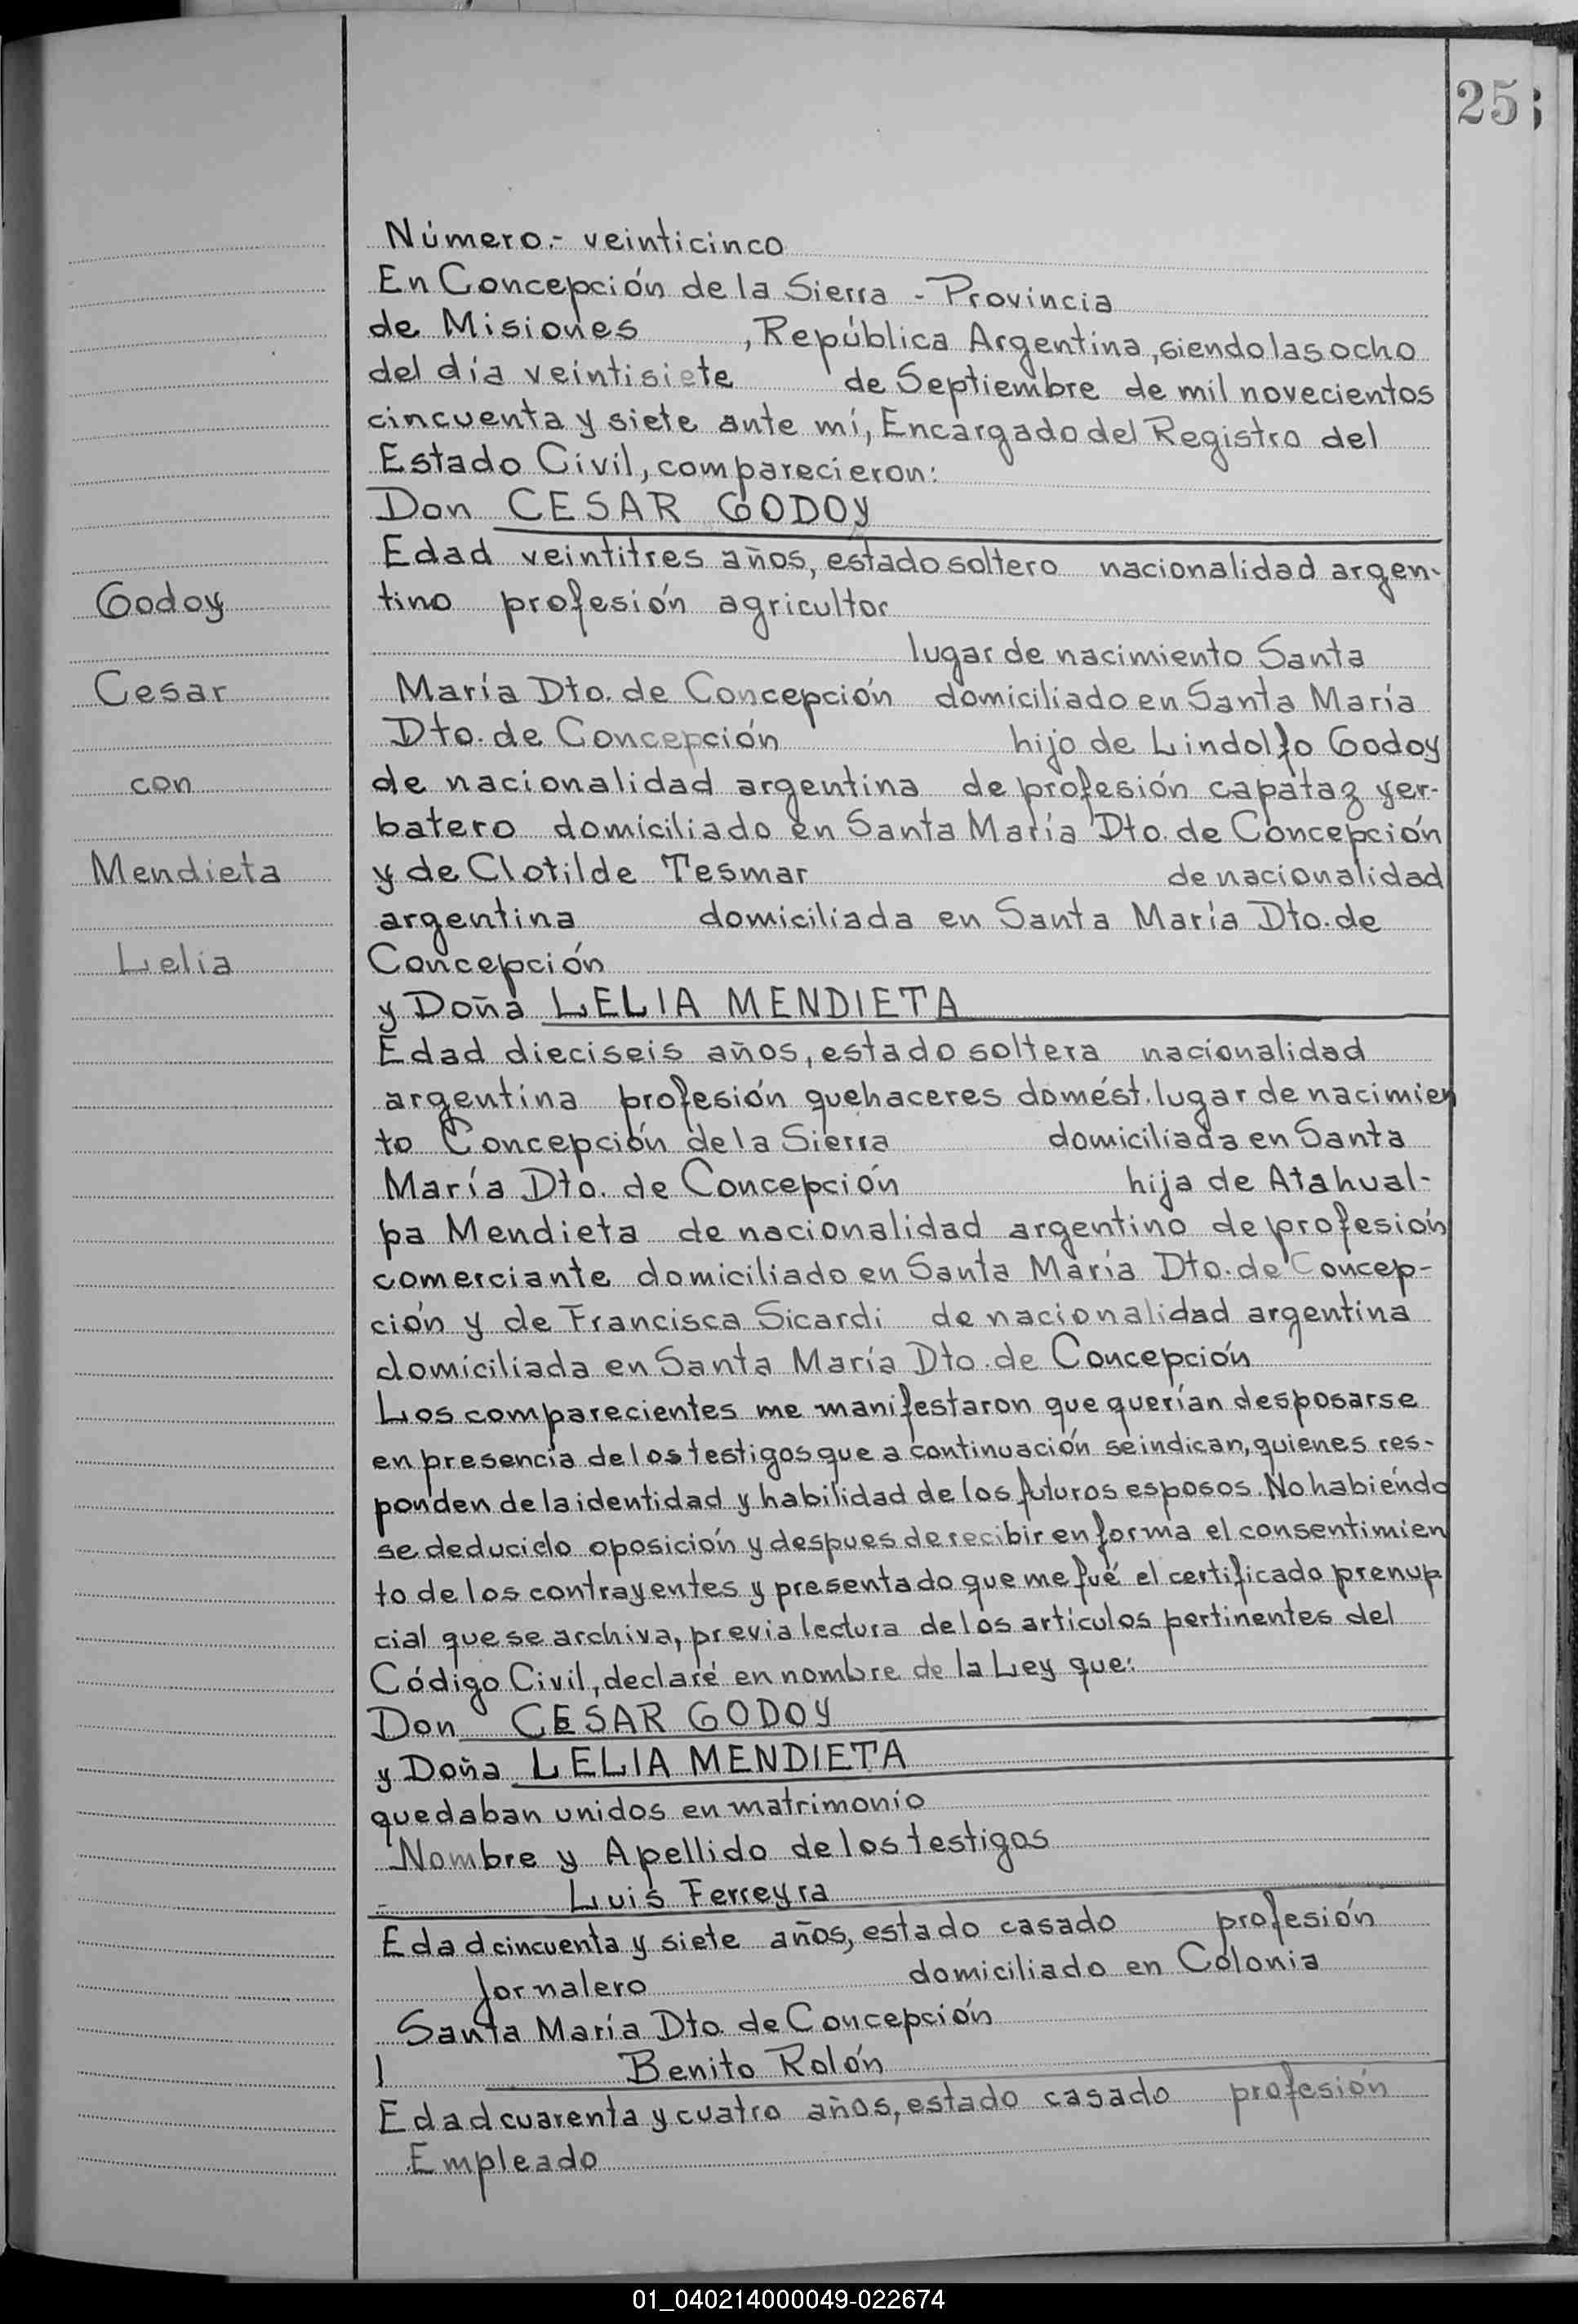 25
Número.- veinticinco
En Concepción de la Sierra - Provincia
de Misiones , República Argentina, siendo las ocho
del día veintisiete de Septiembre de mil novecientos
cincuenta y siete ante mí, Encargado del Registro del
Estado Civil, comparecieron:
Don CESAR GODOY
Edad veintitres años, estado soltero nacionalidad argen-
Godoy
tino profesión agricultor
lugar de nacimiento Santa
Cesar
María Dto. de Concepción domiciliado en Santa María
Dto. de Concepción hijo de Lindolfo Godoy
con
de nacionalidad argentina de profesión capataz yer-
batero domiciliado en Santa María Dto. de Concepción
Mendieta
y de Clotilde Tesmar de nacionalidad
argentina domiciliada en Santa María Dto. de
Lelia
Concepción
y Doña LELIA MENDIETA
Edad dieciseis años, estado soltera nacionalidad
argentina profesión quehaceres domést. lugar de nacimien
to Concepción de la Sierra domiciliada en Santa
María Dto. de Concepción hija de Atahual-
pa Mendieta de nacionalidad argentino de profesión
comerciante domiciliado en Santa María Dto. de Concep-
ción y de Francisca Sicardi de nacionalidad argentina
domiciliada en Santa María Dto. de Concepción
Los comparecientes me manifestaron que querían desposarse
en presencia de los testigos que a continuación se indican, quienes res-
ponden de la identidad y habilidad de los futuros esposos. No habiendo
se deducido oposición y despues de recibir en forma el consentimien
to de los contrayentes y presentado que me fué el certificado prenup
cial que se archiva, previa lectura de los artículos pertinentes del
Código Civil, declaré en nombre de la Ley que:
Don CESAR GODOY
y Doña LELIA MENDIETA
quedaban unidos en matrimonio
Nombre y Apellido de los testigos
Luis Ferreyra
Edad cincuenta y siete años, estado casado profesión
Jornalero domiciliado en Colonia
Santa María Dto. de Concepción
Benito Rolón
Edad cuarenta y cuatro años, estado casado profesión
Empleado
01_040214000049-022674